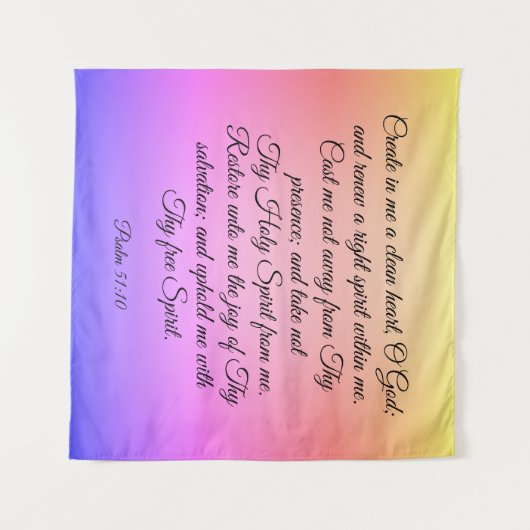 Create in me a clean heart, O God;
and renew a right spirit within me.
Cast me not away from Thy
presence; and take not
Thy Holy Spirit from me.
Restore unto me the joy of Thy
salvation; and uphold me with
Thy free Spirit.
Psalm 51:10